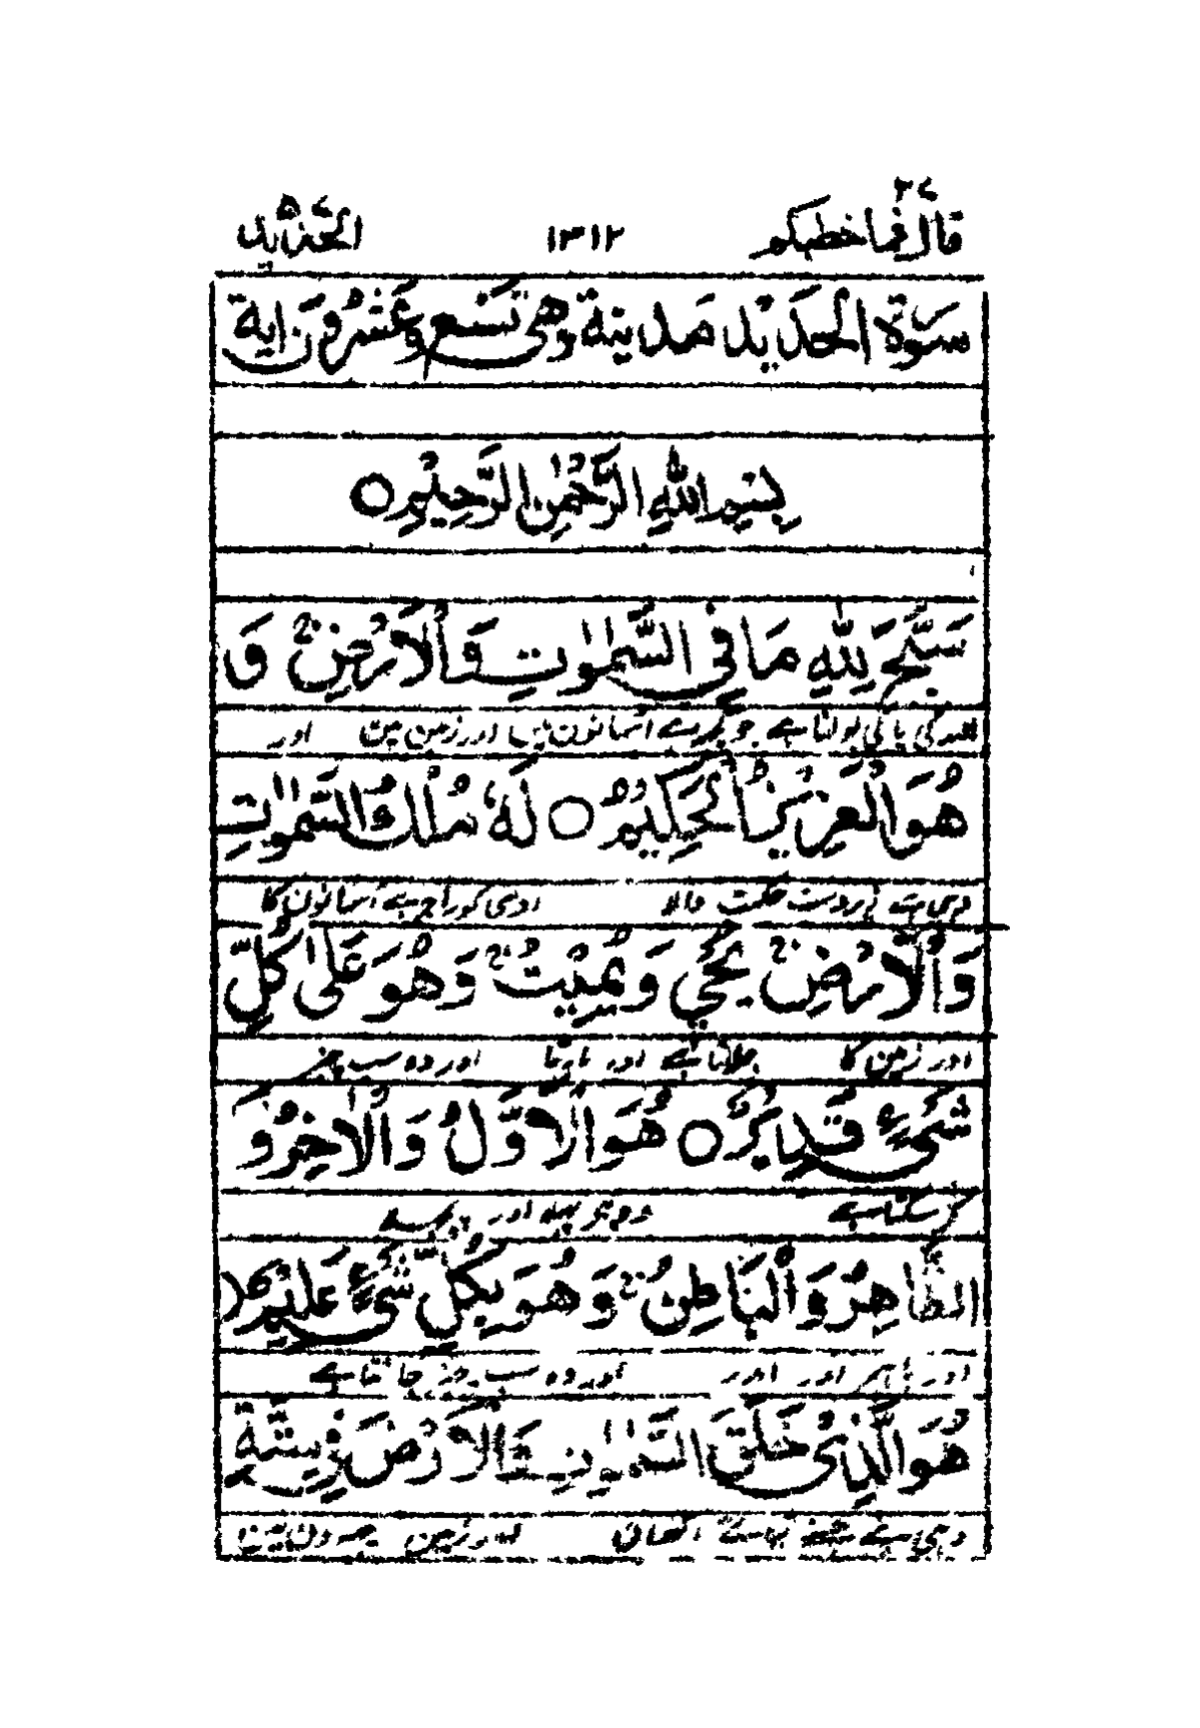 ۲۷
قال فما خطبكم ۱۳۱۲ الحديد ۵۷
سورة الحديد مدينة وهي تسع وعشرون اية
بِسْمِ اللهِ الرَّحْمٰنِ الرَّحِيْمِ ○
سَبَّحَ لِلّٰهِ مَا فِي السَّمٰوٰتِ وَالْاَرْضِ ۚ وَ
اللہ کی پاکی بولتا ہے جو کچھ ہے آسمانوں میں اور زمین میں اور
هُوَ الْعَزِيْزُ الْحَكِيْمُ ○ لَهٗ مُلْكُ السَّمٰوٰتِ
وہی ہے زبردست حکمت والا اوسی کو راج ہے آسمانوں کا
وَالْاَرْضِ ۚ يُحْيٖ وَيُمِيْتُ ۚ وَهُوَ عَلٰى كُلِّ
اور زمین کا جلاتا ہے اور مارتا اور وہ سب چیز
شَيْءٍ قَدِيْرٌ ○ هُوَ الْاَوَّلُ وَالْاٰخِرُ وَ
کر سکتا ہے وہ ہے پہلا اور
الظَّاهِرُ وَالْبَاطِنُ ۚ وَهُوَ بِكُلِّ شَيْءٍ عَلِيْمٌ
اور باہر اور اندر اور وہ سب چیز جانتا ہے
هُوَ الَّذِيْ خَلَقَ السَّمٰوٰتِ وَالْاَرْضَ فِيْ سِتَّةِ
وہی ہے جسنے بنائے آسمان اور زمین چھہ دن میں